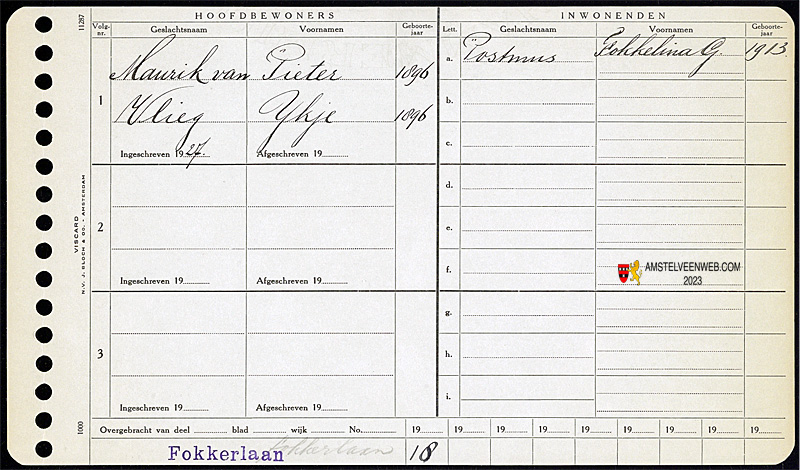 11287
HOOFDBEWONERS
Volg-nr. Geslachtsnaam Voornamen Geboorte-jaar
1
Maurik van Pieter 1896
Vlieg Ykje 1896
Ingeschreven 1927. Afgeschreven 19
2
Ingeschreven 19 Afgeschreven 19
3
Ingeschreven 19 Afgeschreven 19
INWONENDEN
Lett. Geslachtsnaam Voornamen Geboorte-jaar
a. Postmus Fokkelina G. 1913
b.
c.
d.
e.
f.
g.
h.
i.
AMSTELVEENWEB.COM
2023
VISCARD
N.V. J. BLOCH & CO. - AMSTERDAM
1000
Overgebracht van deel blad wijk No. 19 19 19 19 19 19 19 19 19
Fokkerlaan Fokkerlaan 18